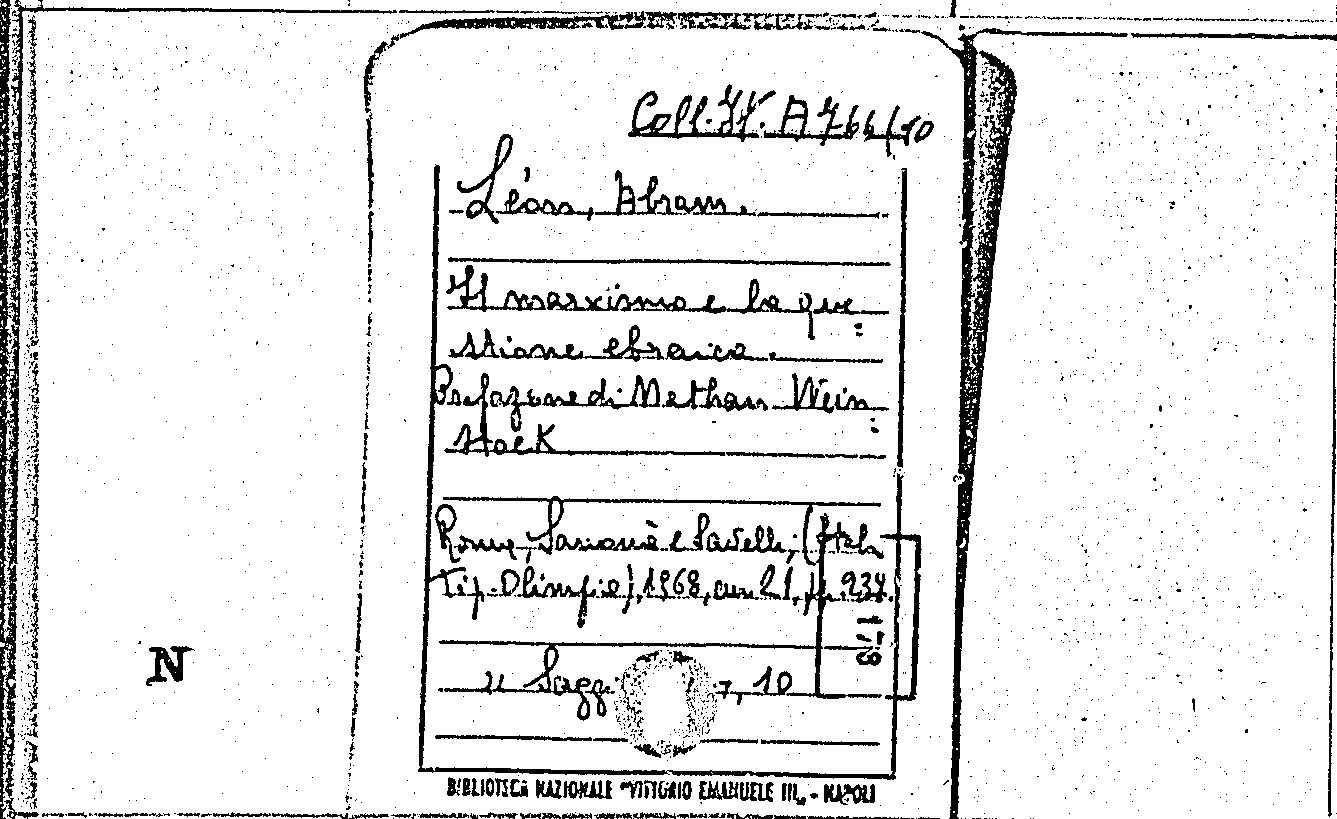 Coll. It. A 766/10
Léon, Abram.
Il marxismo e la que=
stione ebraica.
Prefazione di Nathan Wein=
stock
Roma, Samonà e Savelli, (Itali
Tip. Olimpia), 1968, cm. 21, pp. 234.
N
10
BIBLIOTECA NAZIONALE "VITTORIO EMANUELE III" - NAPOLI